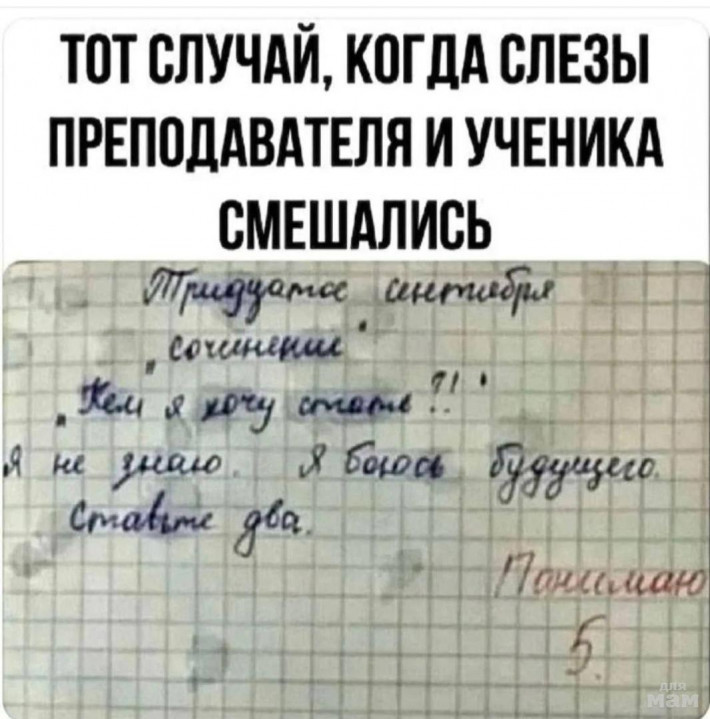 ТОТ СЛУЧАЙ, КОГДА СЛЕЗЫ
ПРЕПОДАВАТЕЛЯ И УЧЕНИКА
СМЕШАЛИСЬ
Тридцатое сентября
„Сочинение"
„Кем я хочу стать?!"
Я не знаю. Я боюсь будущего.
Ставьте два.
Понимаю
5.
для
мам